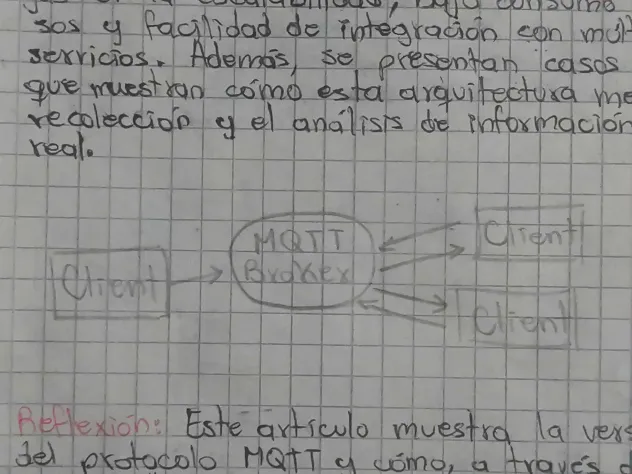 sos y facilidad de integración con múl
servicios. Además, se presentan casos
que muestran cómo esta arquitectura me
recolección y el análisis de información
real.
Client
MQTT
Broker
Client
Client
Reflexión: Este artículo muestra la vers
del protocolo MQTT y cómo, a través d